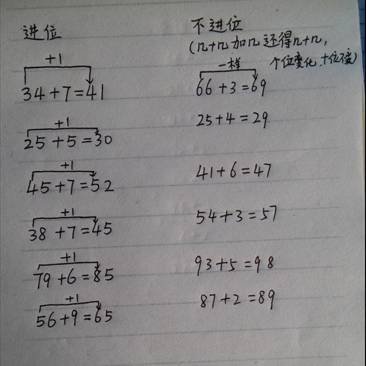 进位
不进位
(几十几加几还得几十几,
个位变化,十位不变)
+1
34+7=41
一样
66+3=69
+1
25+5=30
25+4=29
+1
45+7=52
41+6=47
+1
38+7=45
54+3=57
+1
79+6=85
93+5=98
+1
56+9=65
87+2=89